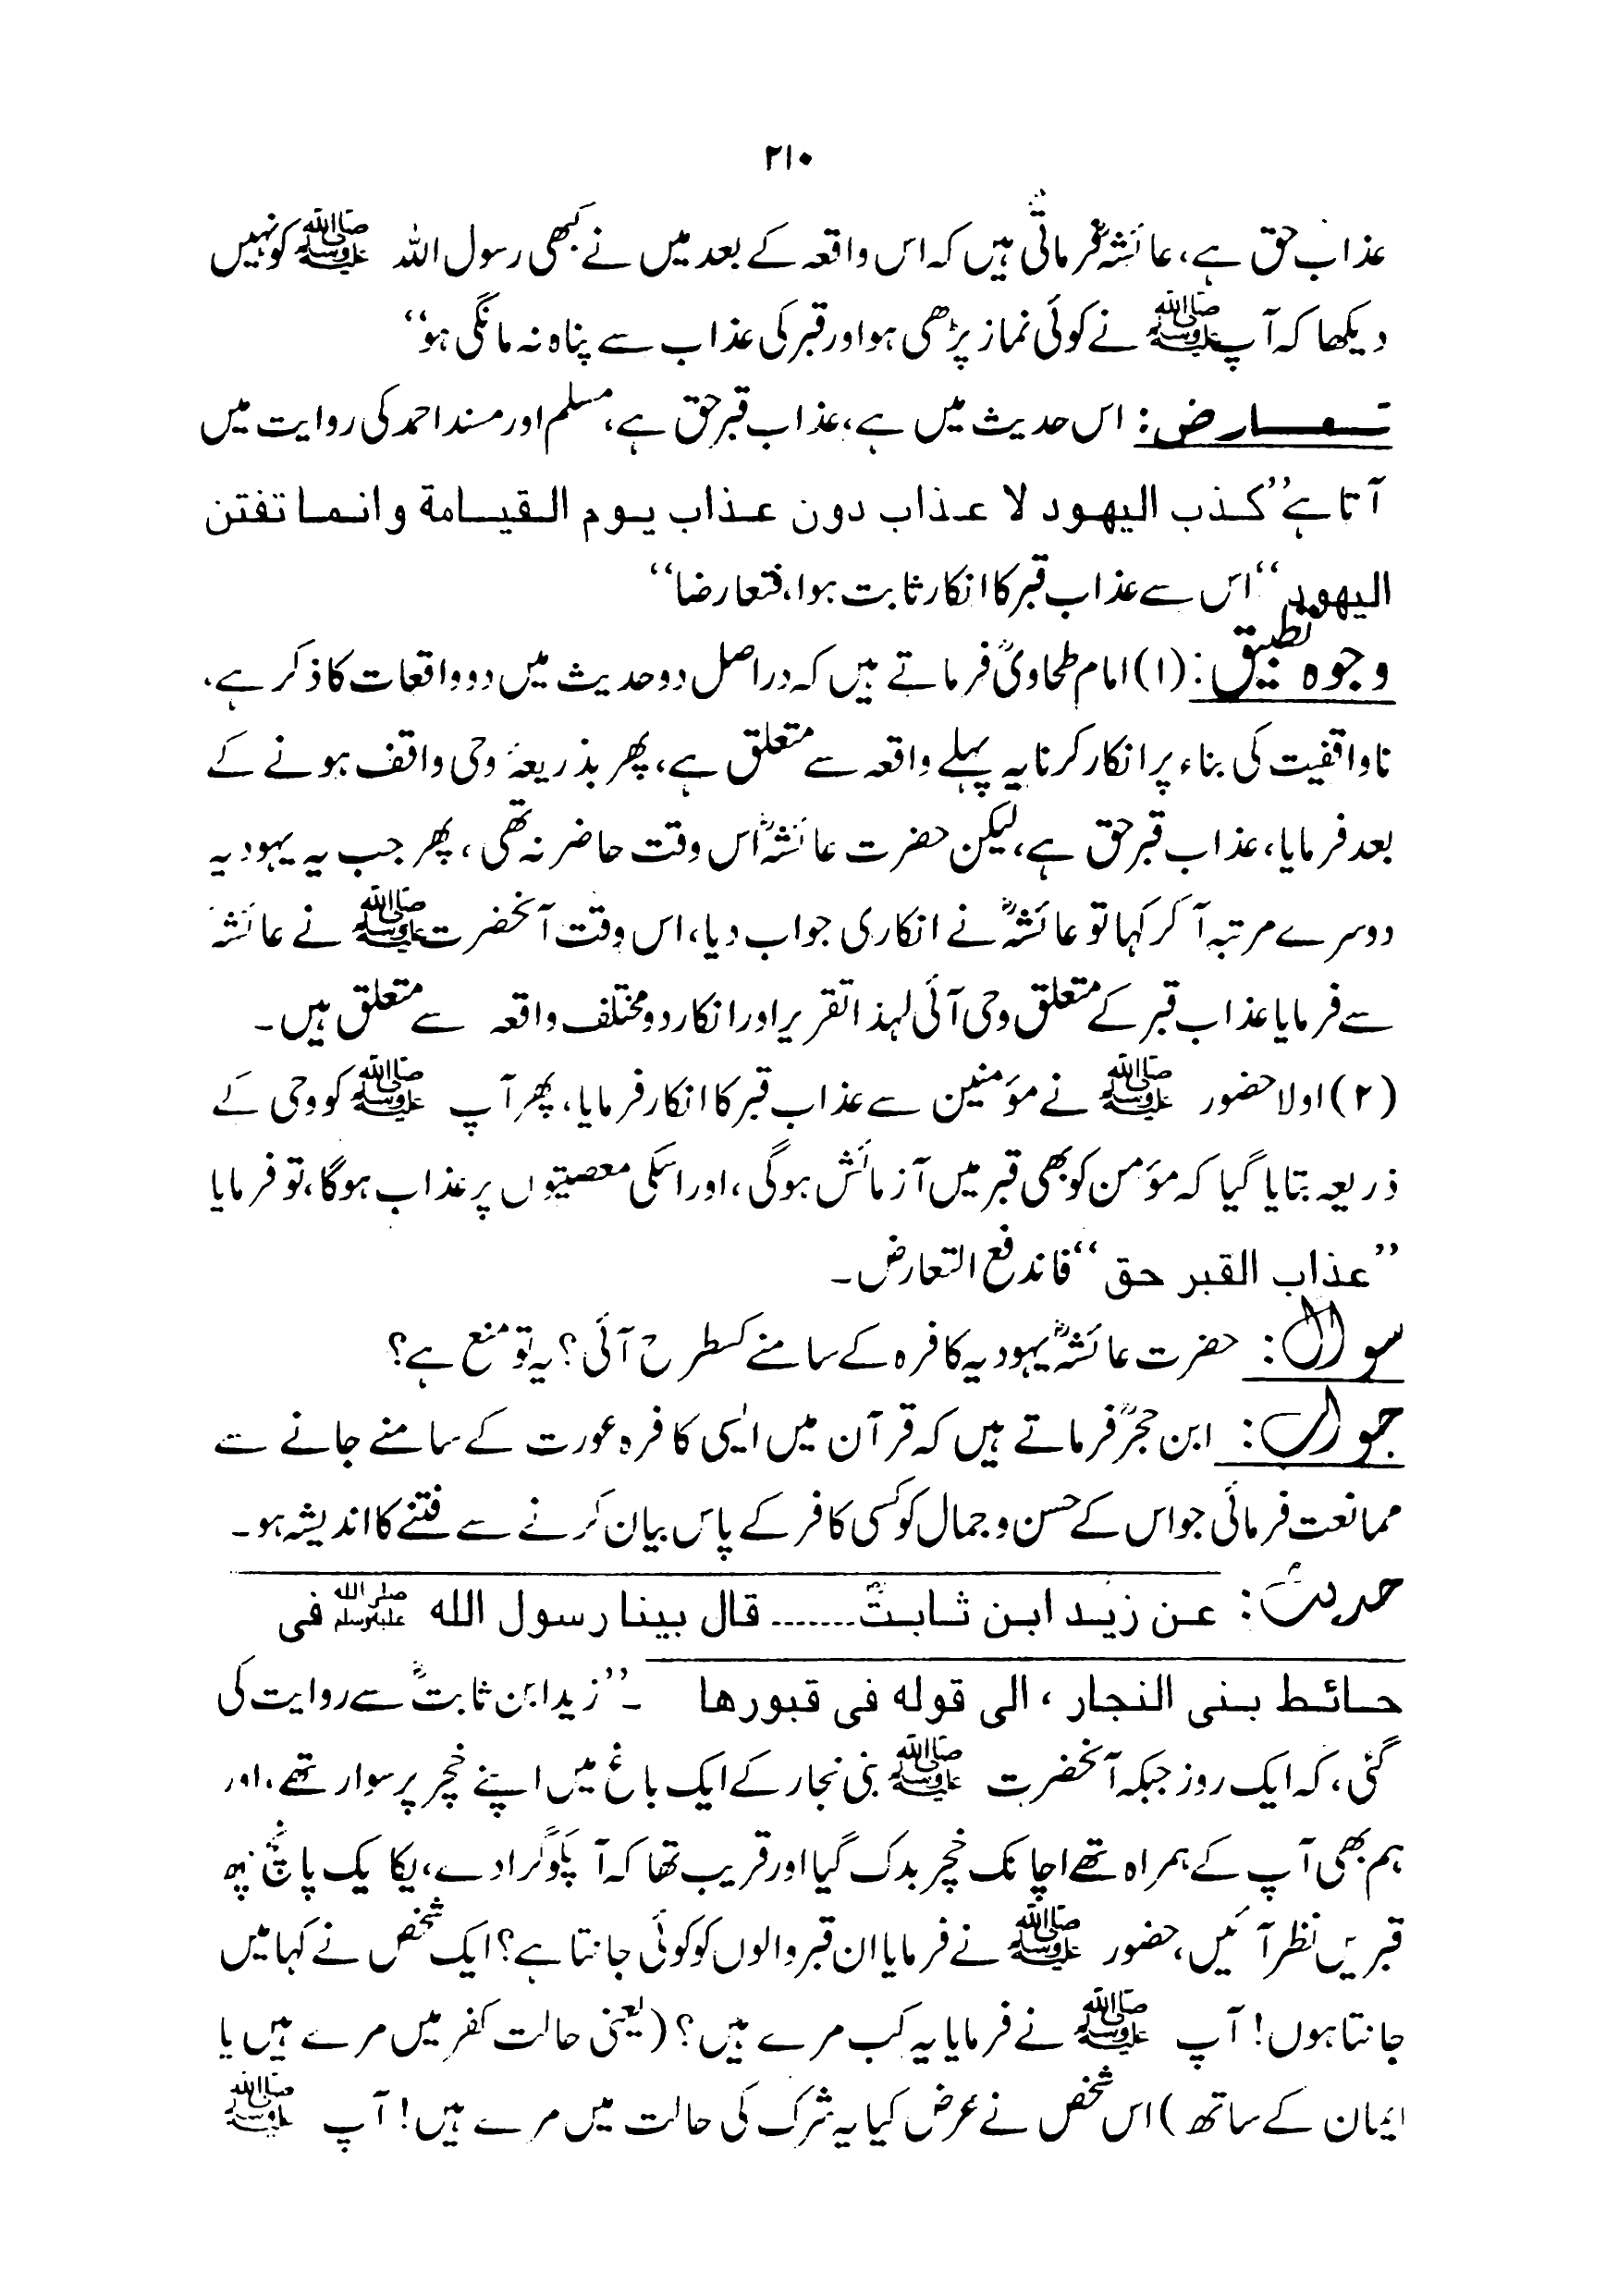 ۲۱۰
عذاب حق ہے، عائشہؓ فرماتی ہیں کہ اس واقعہ کے بعد میں نے کبھی رسول اللہ ﷺ کو نہیں
دیکھا کہ آپ ﷺ نے کوئی نماز پڑھی ہو اور قبر کی عذاب سے پناہ نہ مانگی ہو‘‘
تعارض: اس حدیث میں ہے، عذاب قبر حق ہے، مسلم اور مسند احمد کی روایت میں
آتا ہے ’’کذب الیھود لا عذاب دون عذاب یوم القیامة وانما تفتن
الیھود‘‘ اس سے عذاب قبر کا انکار ثابت ہوا، فتعارضا‘‘
وجوہ تطبیق: (۱) امام طحاویؒ فرماتے ہیں کہ دراصل دو حدیث میں دو واقعات کا ذکر ہے،
ناواقفیت کی بناء پر انکار کرنا یہ پہلے واقعہ سے متعلق ہے، پھر بذریعۂ وحی واقف ہونے کے
بعد فرمایا، عذاب قبر حق ہے، لیکن حضرت عائشہؓ اس وقت حاضر نہ تھی، پھر جب یہ یہودیہ
دوسرے مرتبہ آ کر کہا تو عائشہؓ نے انکاری جواب دیا، اس وقت آنحضرت ﷺ نے عائشہ
سے فرمایا عذاب قبر کے متعلق وحی آئی لہذا تقریر اور انکار دو مختلف واقعہ سے متعلق ہیں۔
(۲) اولا حضور ﷺ نے مؤمنین سے عذاب قبر کا انکار فرمایا، پھر آپ ﷺ کو وحی کے
ذریعہ بتایا گیا کہ مؤمن کو بھی قبر میں آزمائش ہوگی، اور اسکی معصیتوں پر عذاب ہوگا، تو فرمایا
’’عذاب القبر حق‘‘ فاندفع التعارض۔
سوال: حضرت عائشہؓ یہودیہ کافرہ کے سامنے کسطرح آئی؟ یہ تو منع ہے؟
جواب: ابن حجرؒ فرماتے ہیں کہ قرآن میں ایسی کافرہ عورت کے سامنے جانے سے
ممانعت فرمائی جو اس کے حسن و جمال کو کسی کافر کے پاس بیان کرنے سے فتنے کا اندیشہ ہو۔
حدیث: عن زید ابن ثابتؓ....... قال بینا رسول الله ﷺ فی
حائط بنی النجار، الی قوله فی قبورھا ۔’’زید ابن ثابتؓ سے روایت کی
گئی، کہ ایک روز جبکہ آنحضرت ﷺ بنی نجار کے ایک باغ میں اپنے خچر پر سوار تھے، اور
ہم بھی آپ کے ہمراہ تھے اچانک خچر بدک گیا اور قریب تھا کہ آپکو گرا دے، یکا یک پانچ چھ
قبریں نظر آئیں، حضور ﷺ نے فرمایا ان قبر والوں کو کوئی جانتا ہے؟ ایک شخص نے کہا میں
جانتا ہوں! آپ ﷺ نے فرمایا یہ کب مرے ہیں؟ (یعنی حالت کفر میں مرے ہیں یا
ایمان کے ساتھ) اس شخص نے عرض کیا یہ شرک کی حالت میں مرے ہیں! آپ ﷺ